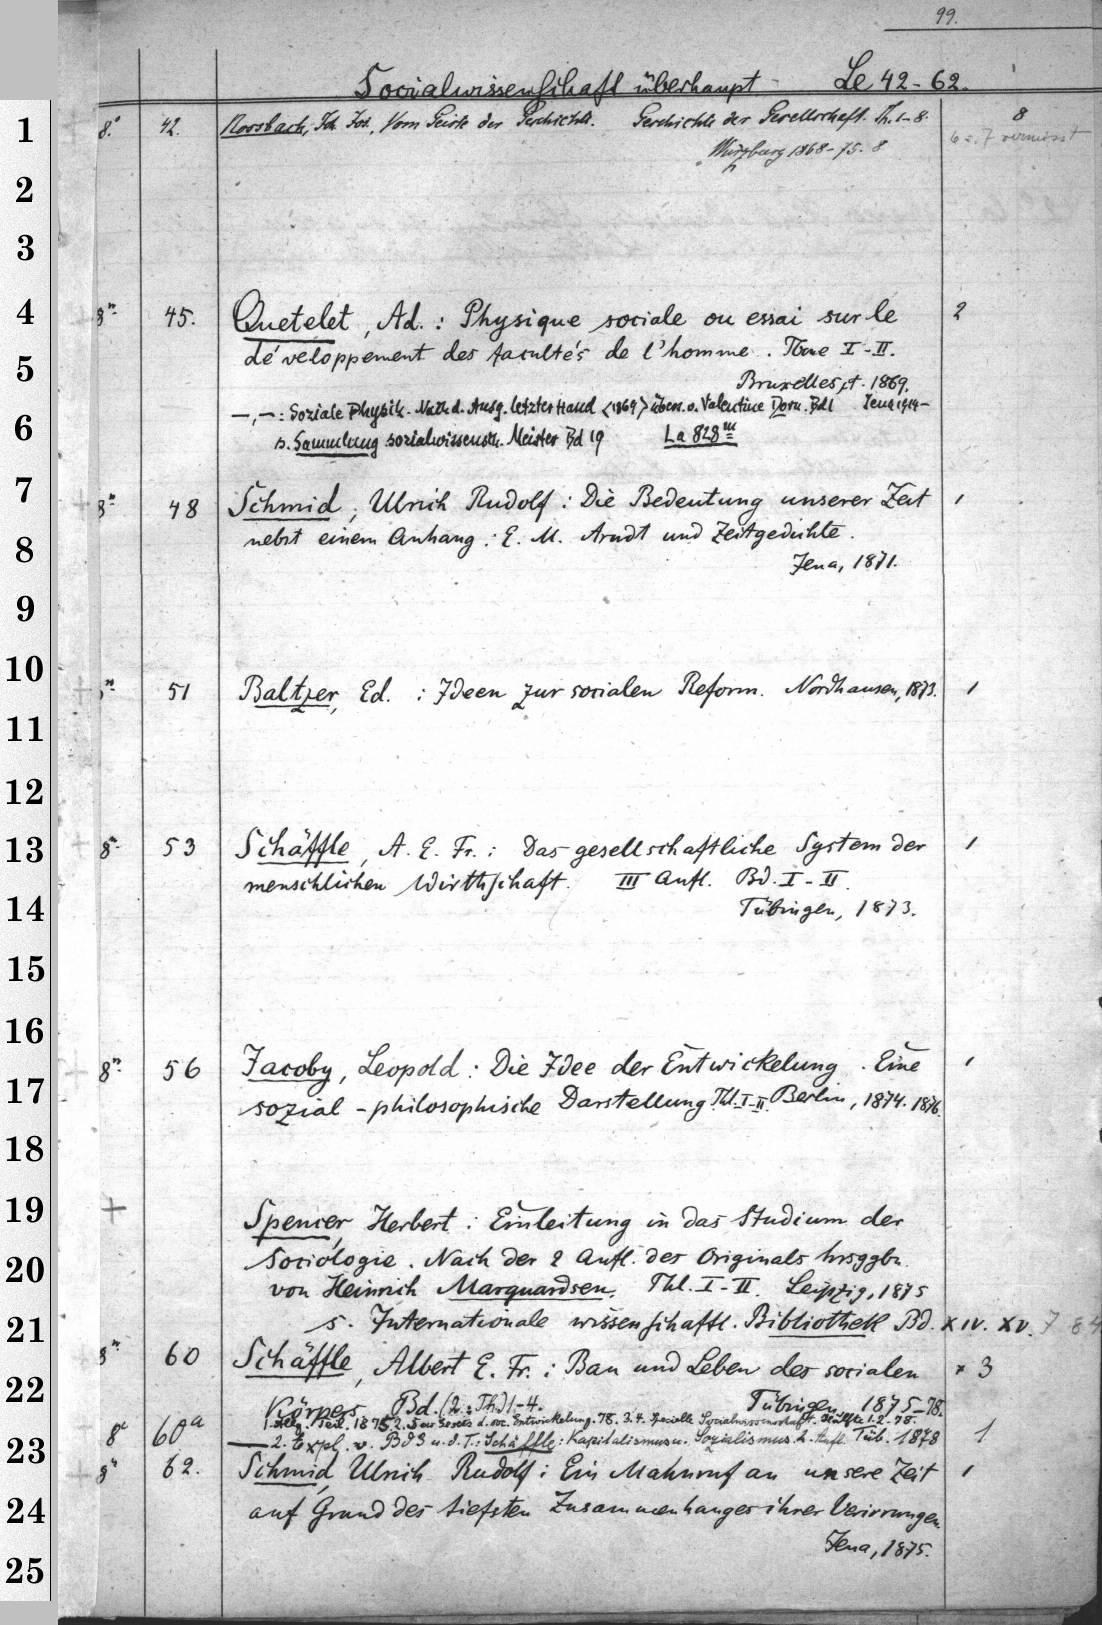 99.
Socialwissenschaft überhaupt Le 42-62.
1 8.° 42. Rossbach, Joh. Jos., Vom Geiste der Geschichte. Geschichte der Gesellschaft. Th. 1-8. 8
Würzburg 1868-75. 8 6 u. 7 vermisst
2
3
4 8° 45. Quetelet, Ad. : Physique sociale ou essai sur le 2
5 développement des facultés de l'homme. Tome I-II.
Bruxelles, 1869.
6 —,—: Soziale Physik. Nach d. Ausg. letzter Hand <1869> übers. v. Valentine Dorn. Bd 1 Jena 1914-
s. Sammlung sozialwissensch. Meister Bd 19 La 828m
7 8° 48 Schmid, Ulrich Rudolf : Die Bedeutung unserer Zeit 1
8 nebst einem Anhang : E. M. Arndt und Zeitgedichte.
Jena, 1871.
9
10 51 Baltzer, Ed. : Ideen zur socialen Reform. Nordhausen, 1873. 1
11
12
13 8° 53 Schäffle, A. E. Fr. : Das gesellschaftliche System der 1
menschlichen Wirthschaft. III Aufl. Bd. I-II.
14 Tübingen, 1873.
15
16
17 8° 56 Jacoby, Leopold : Die Idee der Entwickelung. Eine 1
sozial-philosophische Darstellung Thl. I-II. Berlin, 1874. 1876.
18
19 + Spencer, Herbert : Einleitung in das Studium der
20 Sociologie. Nach der 2 Aufl. des Originals hrsggbn.
von Heinrich Marquardsen. Thl. I-II. Leipzig, 1875
21 s. Internationale wissenschaftl. Bibliothek Bd. XIV. XV.
8° 60 Schäffle, Albert E. Fr. : Bau und Leben des socialen x 3
22 Körpers Bd. (u. Th.) 1-4. Tübingen 1875-78.
1. Allg. Teil. 1875 2. Das Gesetz d. soc. Entwickelung. 78. 3. 4. Specielle Socialwissenschaft. Hälfte 1. 2. 78.
23 8° 60a — 2. Expl. v. Bd 3 u. d. T.: Schäffle : Kapitalismus u. Sozialismus. 2. Aufl. Tüb. 1878 1
8° 62. Schmid, Ulrich Rudolf : Ein Mahnruf an unsere Zeit 1
24 auf Grund des tiefsten Zusammenhanges ihrer Verirrungen
Jena, 1875.
25